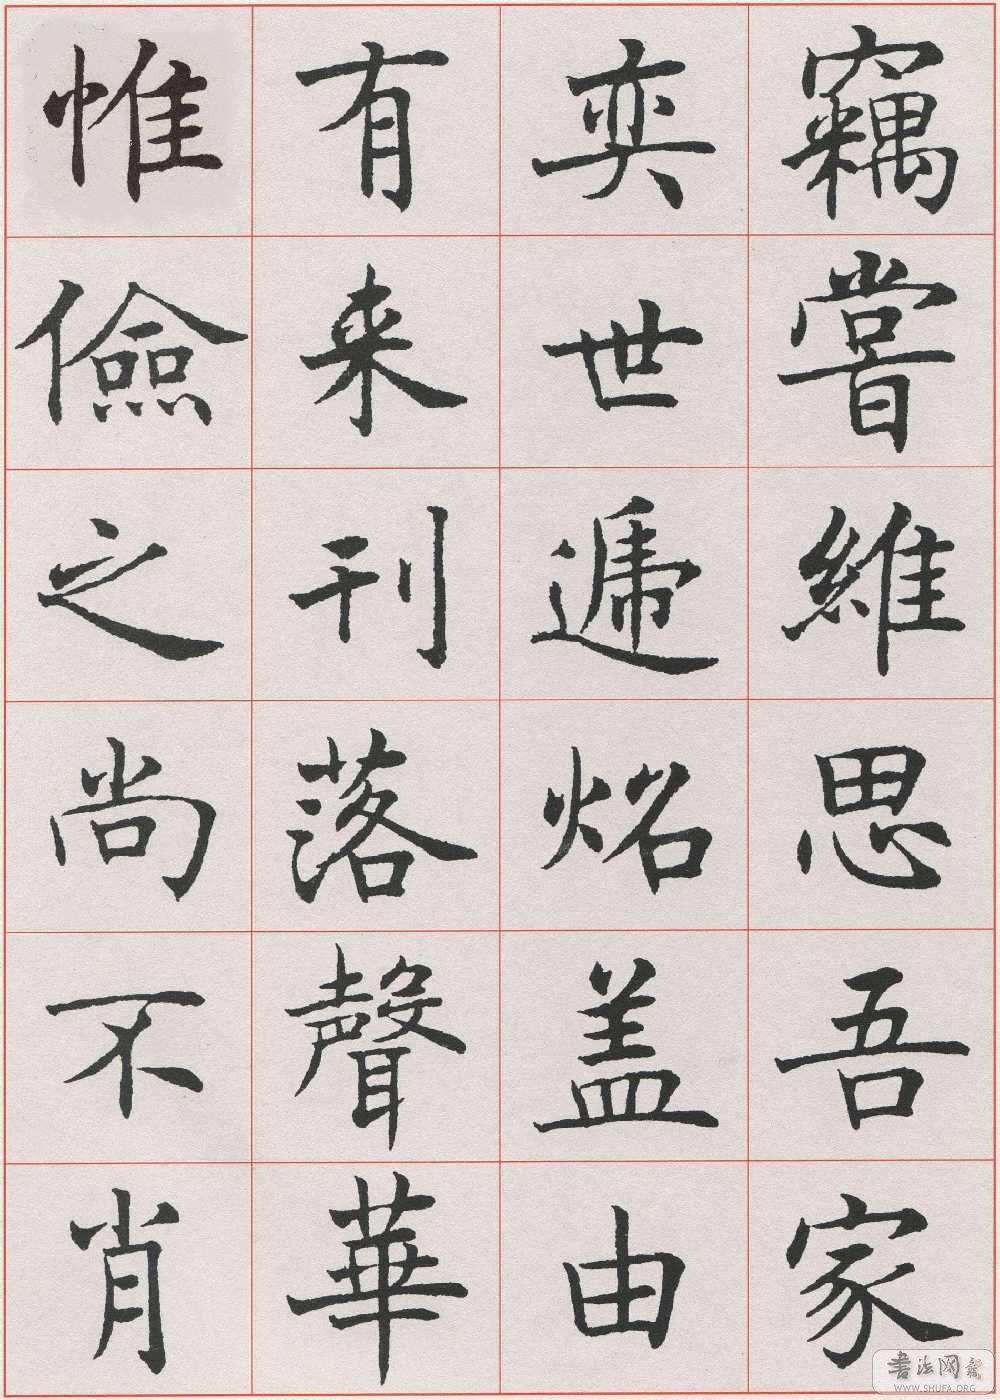 竊嘗維思吾家
奕世遞炤盖由
有来刊落聲華
惟儉之尚不肖
書法网
WWW.SHUFA.ORG